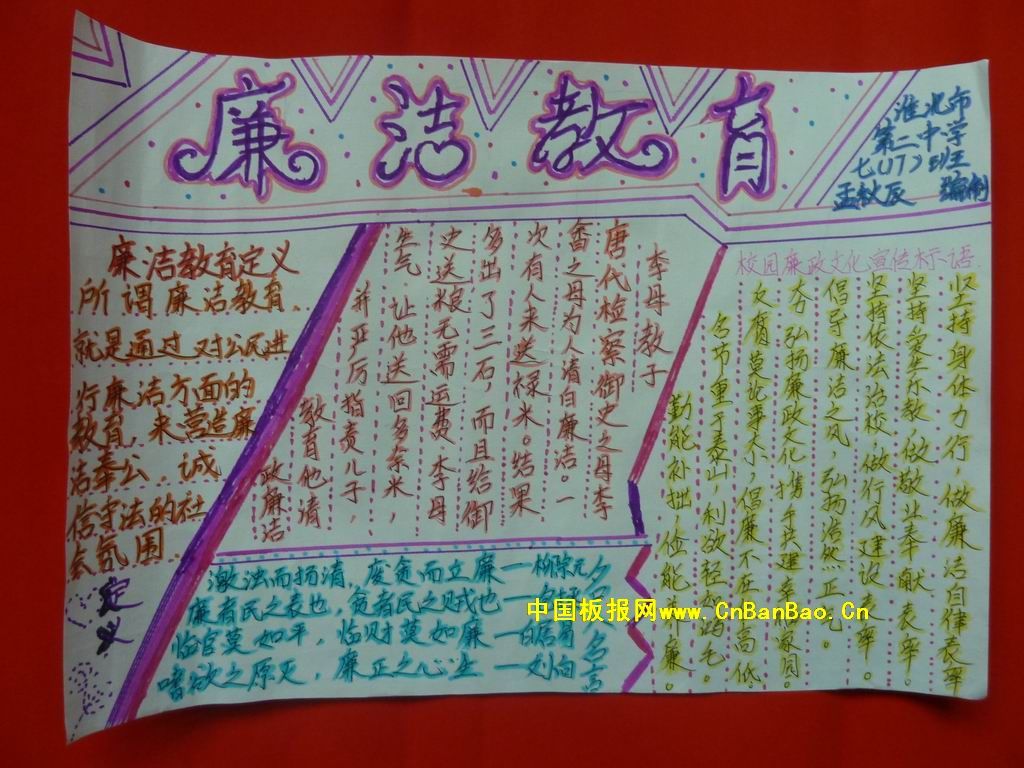 廉洁教育
淮北市
第二中学
七(17)班
孟秋辰 编制
廉洁教育定义
所谓廉洁教育
就是通过对公民进
行廉洁方面的
教育,来营造廉
洁奉公、诚
信守法的社
会氛围.
定义
李母教子
唐代检察御史之母李
畬之母为人清白廉洁。一
次有人来送禄米。结果
多出了三石,而且给御
史送粮无需运费 李母
生气 让他送回多余米,
并严厉指责儿子,
教育他清
政廉洁
校园廉政文化宣传标语.
坚持身体力行,做廉洁自律表率
坚持爱生乐教,做敬业奉献表率。
坚持依法治校,做行风建设表率。
倡导廉洁之风,弘扬浩然正气。
弘扬廉政文化携手共建幸 家园。
女有莫论事小,倡廉不在 高低。
名节重于泰山,利欲轻如鸿毛。
勤能补拙,俭能养廉。
激浊而扬清,废贪而立廉——柳宗元
廉者民之表也,贪者民之贼也——
临官莫如平,临财莫如廉——
嗜欲之原灭,廉正之心生——刘向
名言
中国板报网www.CnBanBao.Cn